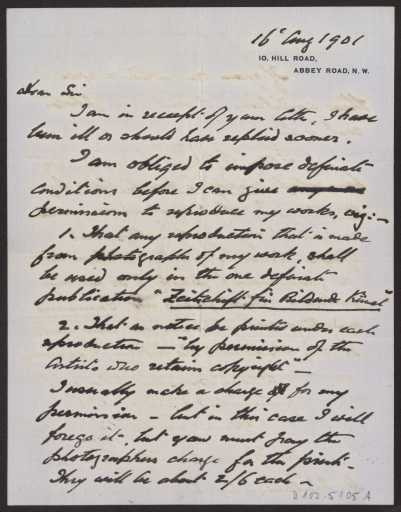 16th Aug 1901
10, HILL ROAD,
ABBEY ROAD, N.W.
Dear Sir
I am in receipt of your letter, I have
been ill or should have replied sooner.
I am obliged to impose definite
conditions before I can give
permission to reproduce my works, viz:-
1. That any reproduction that is made
from photographs of my work, shall
be used only in the one definite
publication "Zeitschrift für Bildende Kunst"
2. That a notice be printed under each
reproduction - "by permission of the
Artist who retains copyright" -
I usually make a charge for my
permission - but in this case I will
forego it - but you must pay the
photographers charge for the print -
They will be about 2/6 each -
D 102.5105 A